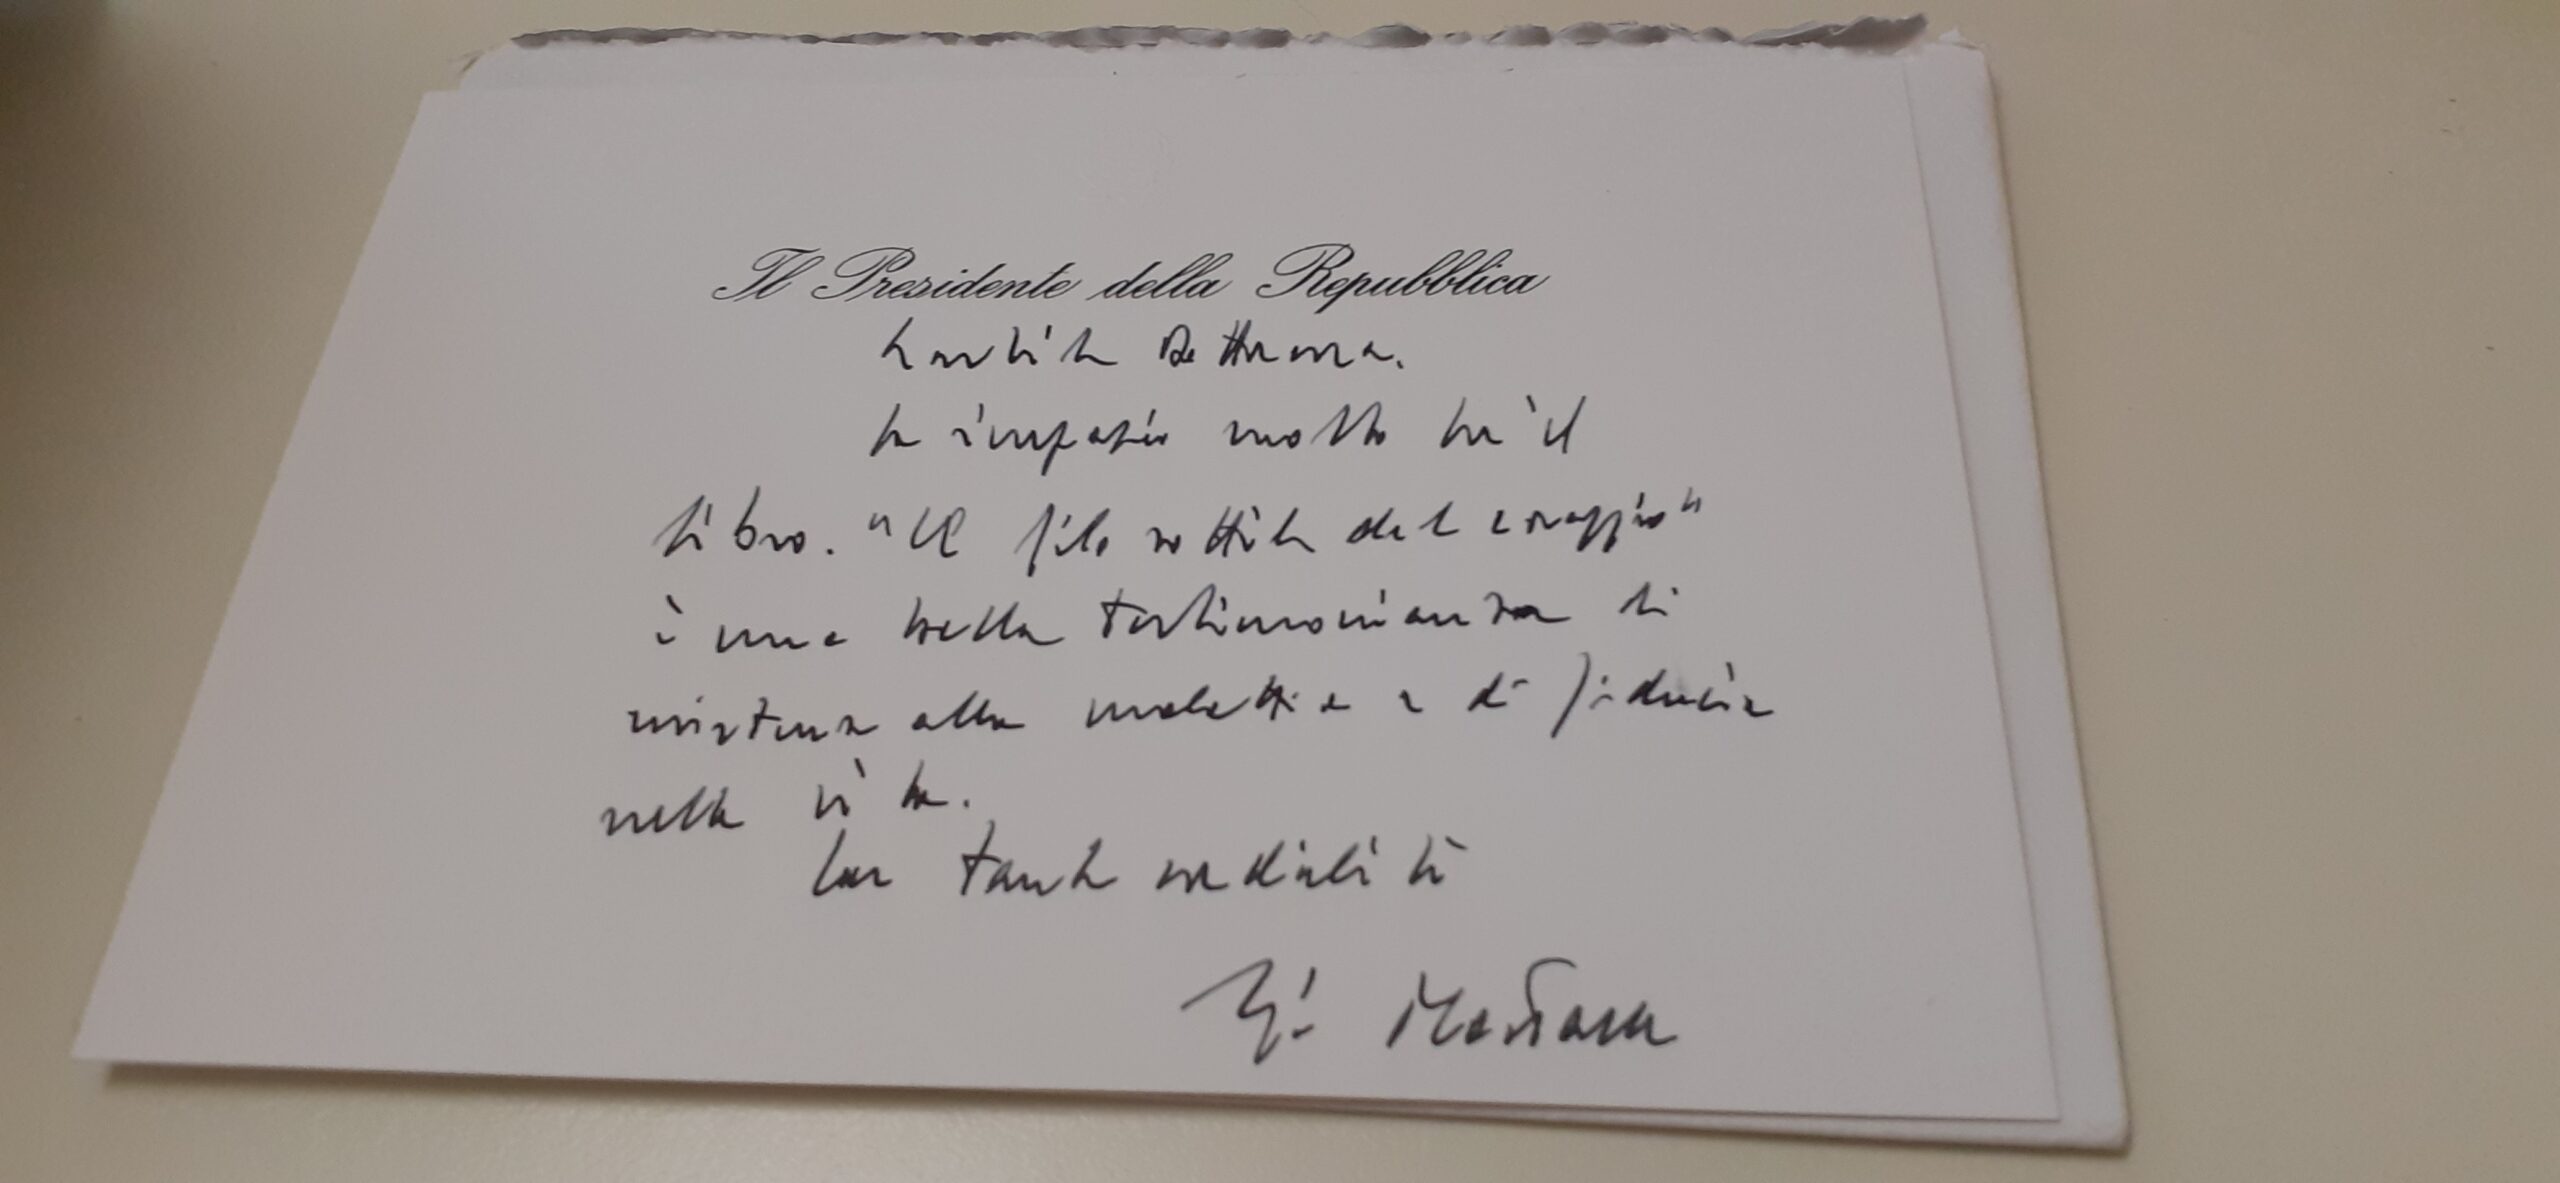 Il Presidente della Repubblica
Gentile Dottoressa.
La ringrazio molto per il
libro. "Il filo sottile del coraggio"
è una bella testimonianza di
resistenza alla malattia e di fiducia
nella vita.
Con tanta cordialità
Mattarella